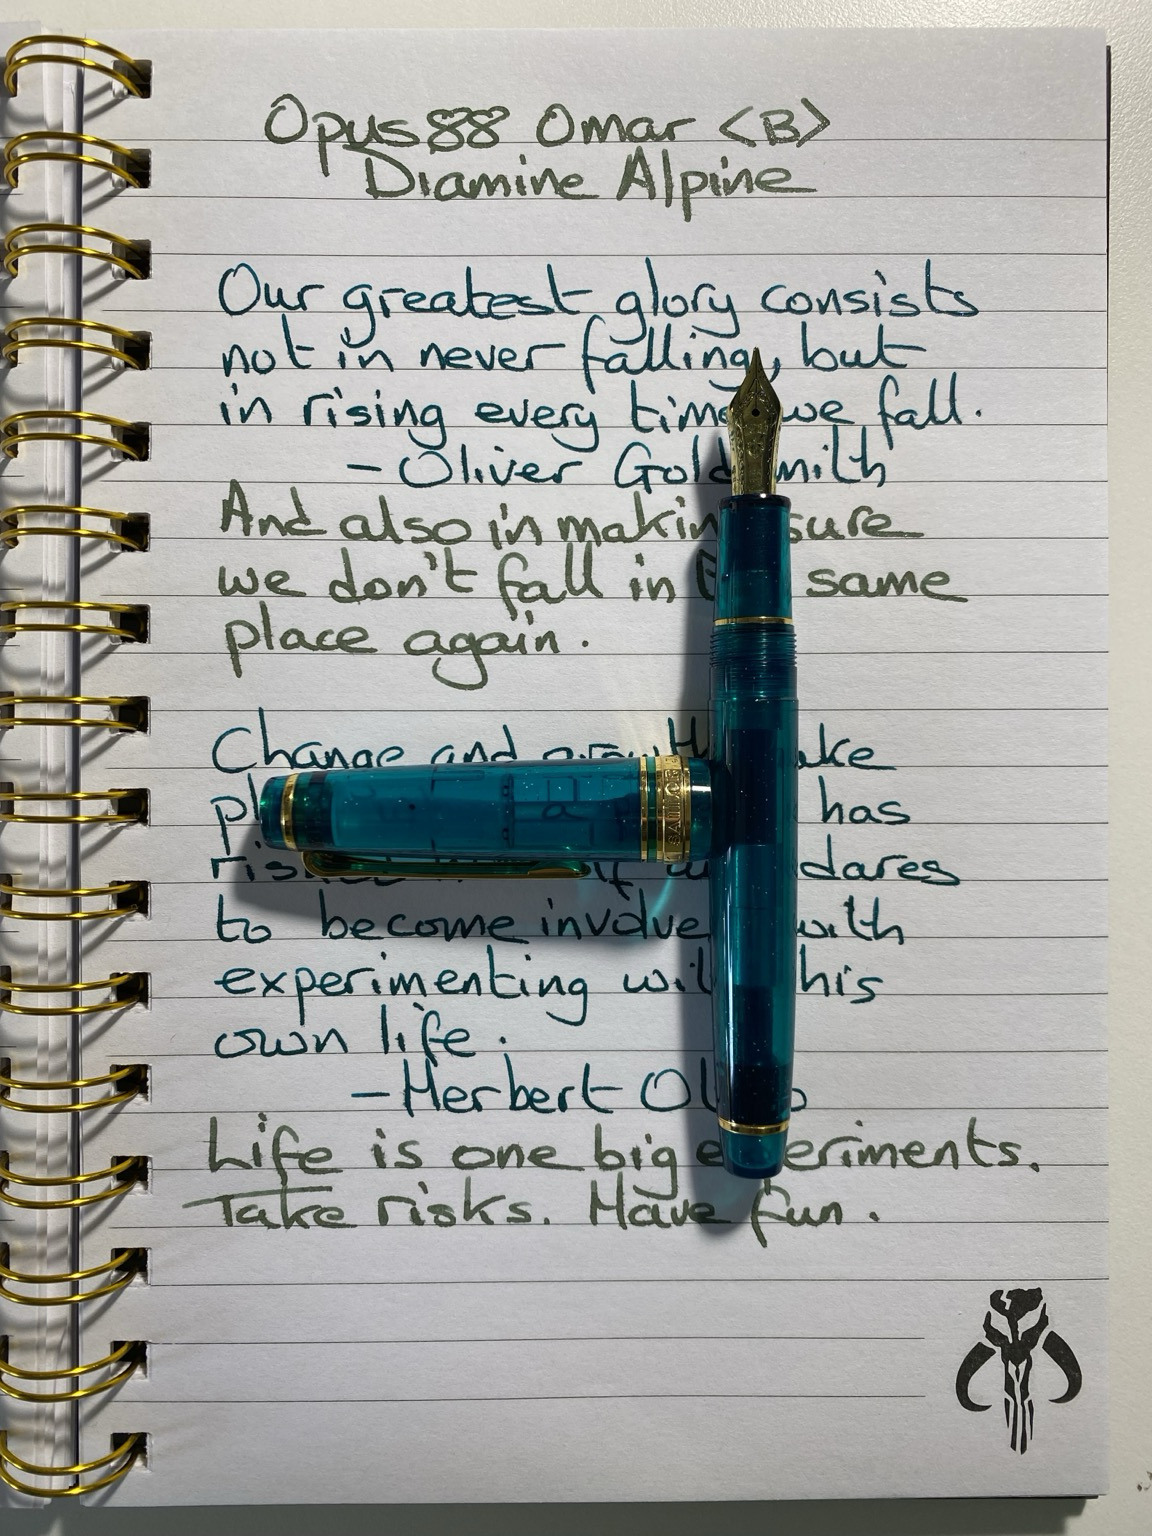 Opus 88 Omar <B>
Diamine Alpine
Our greatest glory consists
not in never falling, but
in rising every time we fall.
- Oliver Goldsmith
And also in making sure
we don't fall in same
place again.
Change and growth take
has
dares
to become involved with
experimenting with his
own life.
- Herbert
Life is one big experiments.
Take risks. Have fun.
SAILOR